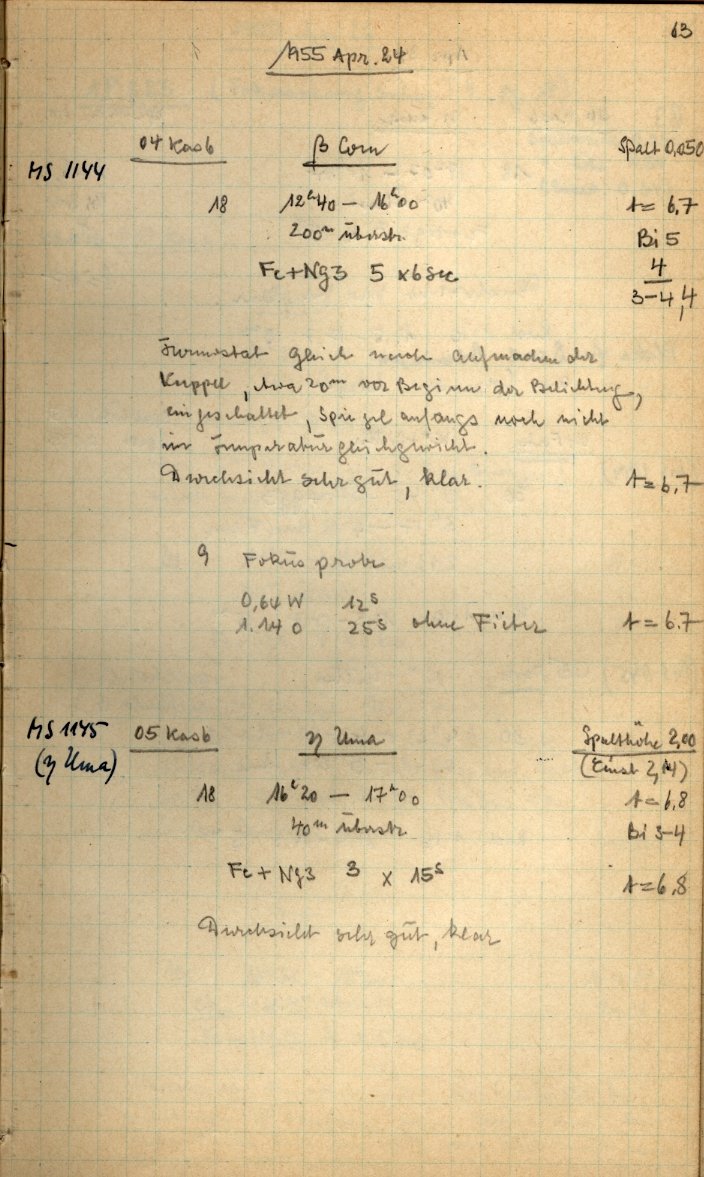 63
1955 Apr. 24
04 Kasb β Com Spalt 0,050
MS 1144
18 12h40 — 16h00 t = 6,7
200m überstr. Bi 5
Fe + Ng3 5 x 6 sec 4
3-4,4
Termostat gleich nach aufmachen der
Kuppel, etwa 20m vor Beginn der Belichtung,
eingeschaltet, Spiegel anfangs noch nicht
im Temperaturgleichgewicht.
Durchsicht sehr gut, klar. t = 6,7
9 Fokus probe
0,64 W 12s
1.14 0 25s ohne Filter t = 6.7
MS 1145 05 Kasb η Uma Spalthöhe 2,00
(η Uma) (Einst 2,14)
18 16h20 — 17h00 t = 6,8
40m überstr. Bi 3-4
Fe + Ng3 3 x 15s t = 6,8
Durchsicht sehr gut, klar